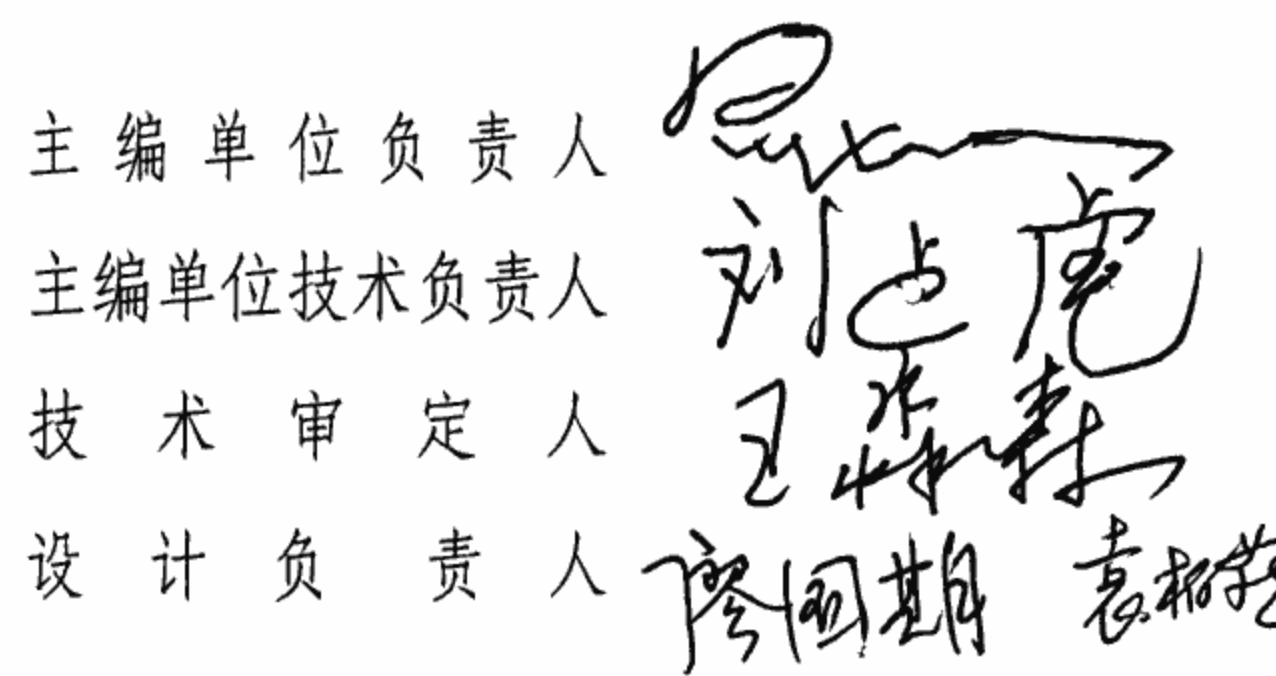 主编单位负责人
主编单位技术负责人 刘占虎
技术审定人 王森森
设计负责人 廖国期 袁柳